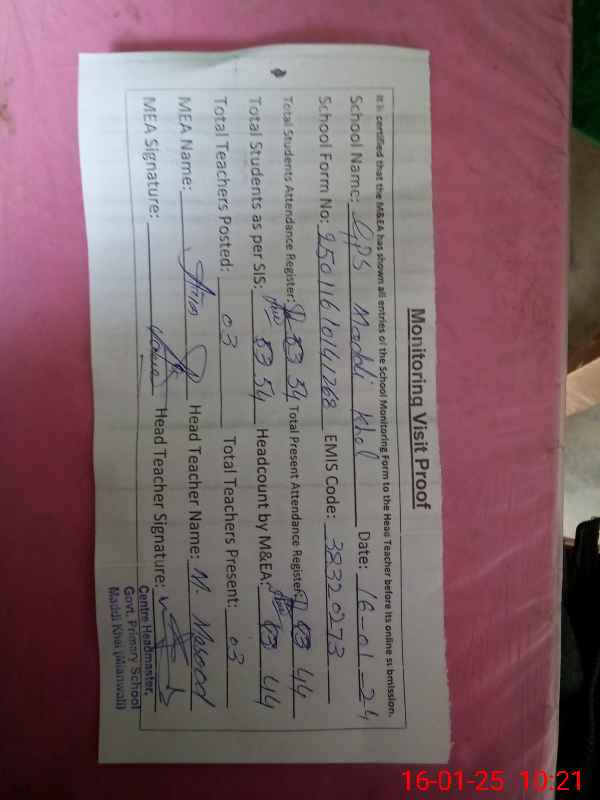 Monitoring Visit Proof
It is certified that the M&EA has shown all entries of the School Monitoring Form to the Head Teacher before its online submission.
School Name: GPS Maddi Khel Date: 16-01-24
School Form No: 25011610141268 EMIS Code: 38320273
Total Students Attendance Register: 53 54 Total Present Attendance Register: 43 44
Total Students as per SIS: 53 54 Headcount by M&EA: 43 44
Total Teachers Posted: 03 Total Teachers Present: 03
MEA Name: Head Teacher Name: M. Masood
MEA Signature: Head Teacher Signature:
Centre Headmaster,
Govt. Primary School
Maddi Khel (Mianwali)
16-01-25 10:21